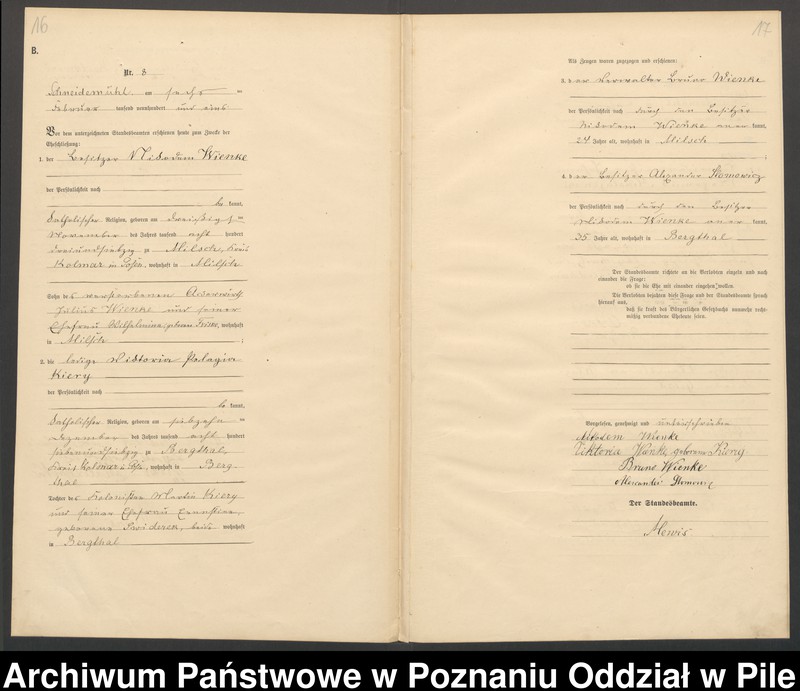 16
B.
Nr. 8
Schneidemühl, am sechs
Februar tausend neunhundert und eins
Vor dem unterzeichneten Standesbeamten erschienen heute zum Zwecke der
Eheschließung:
1. der Besitzer Nikodem Wienke
der Persönlichkeit nach
be kannt,
katholischer Religion, geboren am
November des Jahres tausend acht hundert
dreiundsiebzig zu Milsch, Kreis
Kolmar in Posen, wohnhaft in Milsch
Sohn des verstorbenen Ackerwirth
Julius Wienke und seiner
Ehefrau Wilhelmina, geborene wohnhaft
in Milsch
2. die ledige Viktoria Pelagia
Kiery
der Persönlichkeit nach
be kannt,
katholischer Religion, geboren am siebzehn
Dezember des Jahres tausend acht hundert
siebenundsiebzig zu Bergthal,
Kreis Kolmar i. Pos., wohnhaft in Berg-
thal
Tochter des Kolonisten Martin Kiery
und seiner Ehefrau Ernestine,
geborene beide wohnhaft
in Bergthal
17
Als Zeugen waren zugezogen und erschienen:
3. der Verwalter Bruno Wienke
der Persönlichkeit nach durch den Besitzer
Nikodem Wienke aner kannt,
24 Jahre alt, wohnhaft in Milsch
4. der Besitzer Alexander Slomowicz
der Persönlichkeit nach durch den Besitzer
Nikodem Wienke aner kannt,
35 Jahre alt, wohnhaft in Bergthal
Der Standesbeamte richtete an die Verlobten einzeln und nach
einander die Frage:
ob sie die Ehe mit einander eingehen wollen.
Die Verlobten bejahten diese Frage und der Standesbeamte sprach
hierauf aus,
daß sie kraft des Bürgerlichen Gesetzbuchs nunmehr recht-
mäßig verbundene Eheleute seien.
Vorgelesen, genehmigt und unterschrieben
Nikodem Wienke
Viktoria Wienke, geborene Kiery
Bruno Wienke
Alexander Slomowicz
Der Standesbeamte.
Archiwum Państwowe w Poznaniu Oddział w Pile